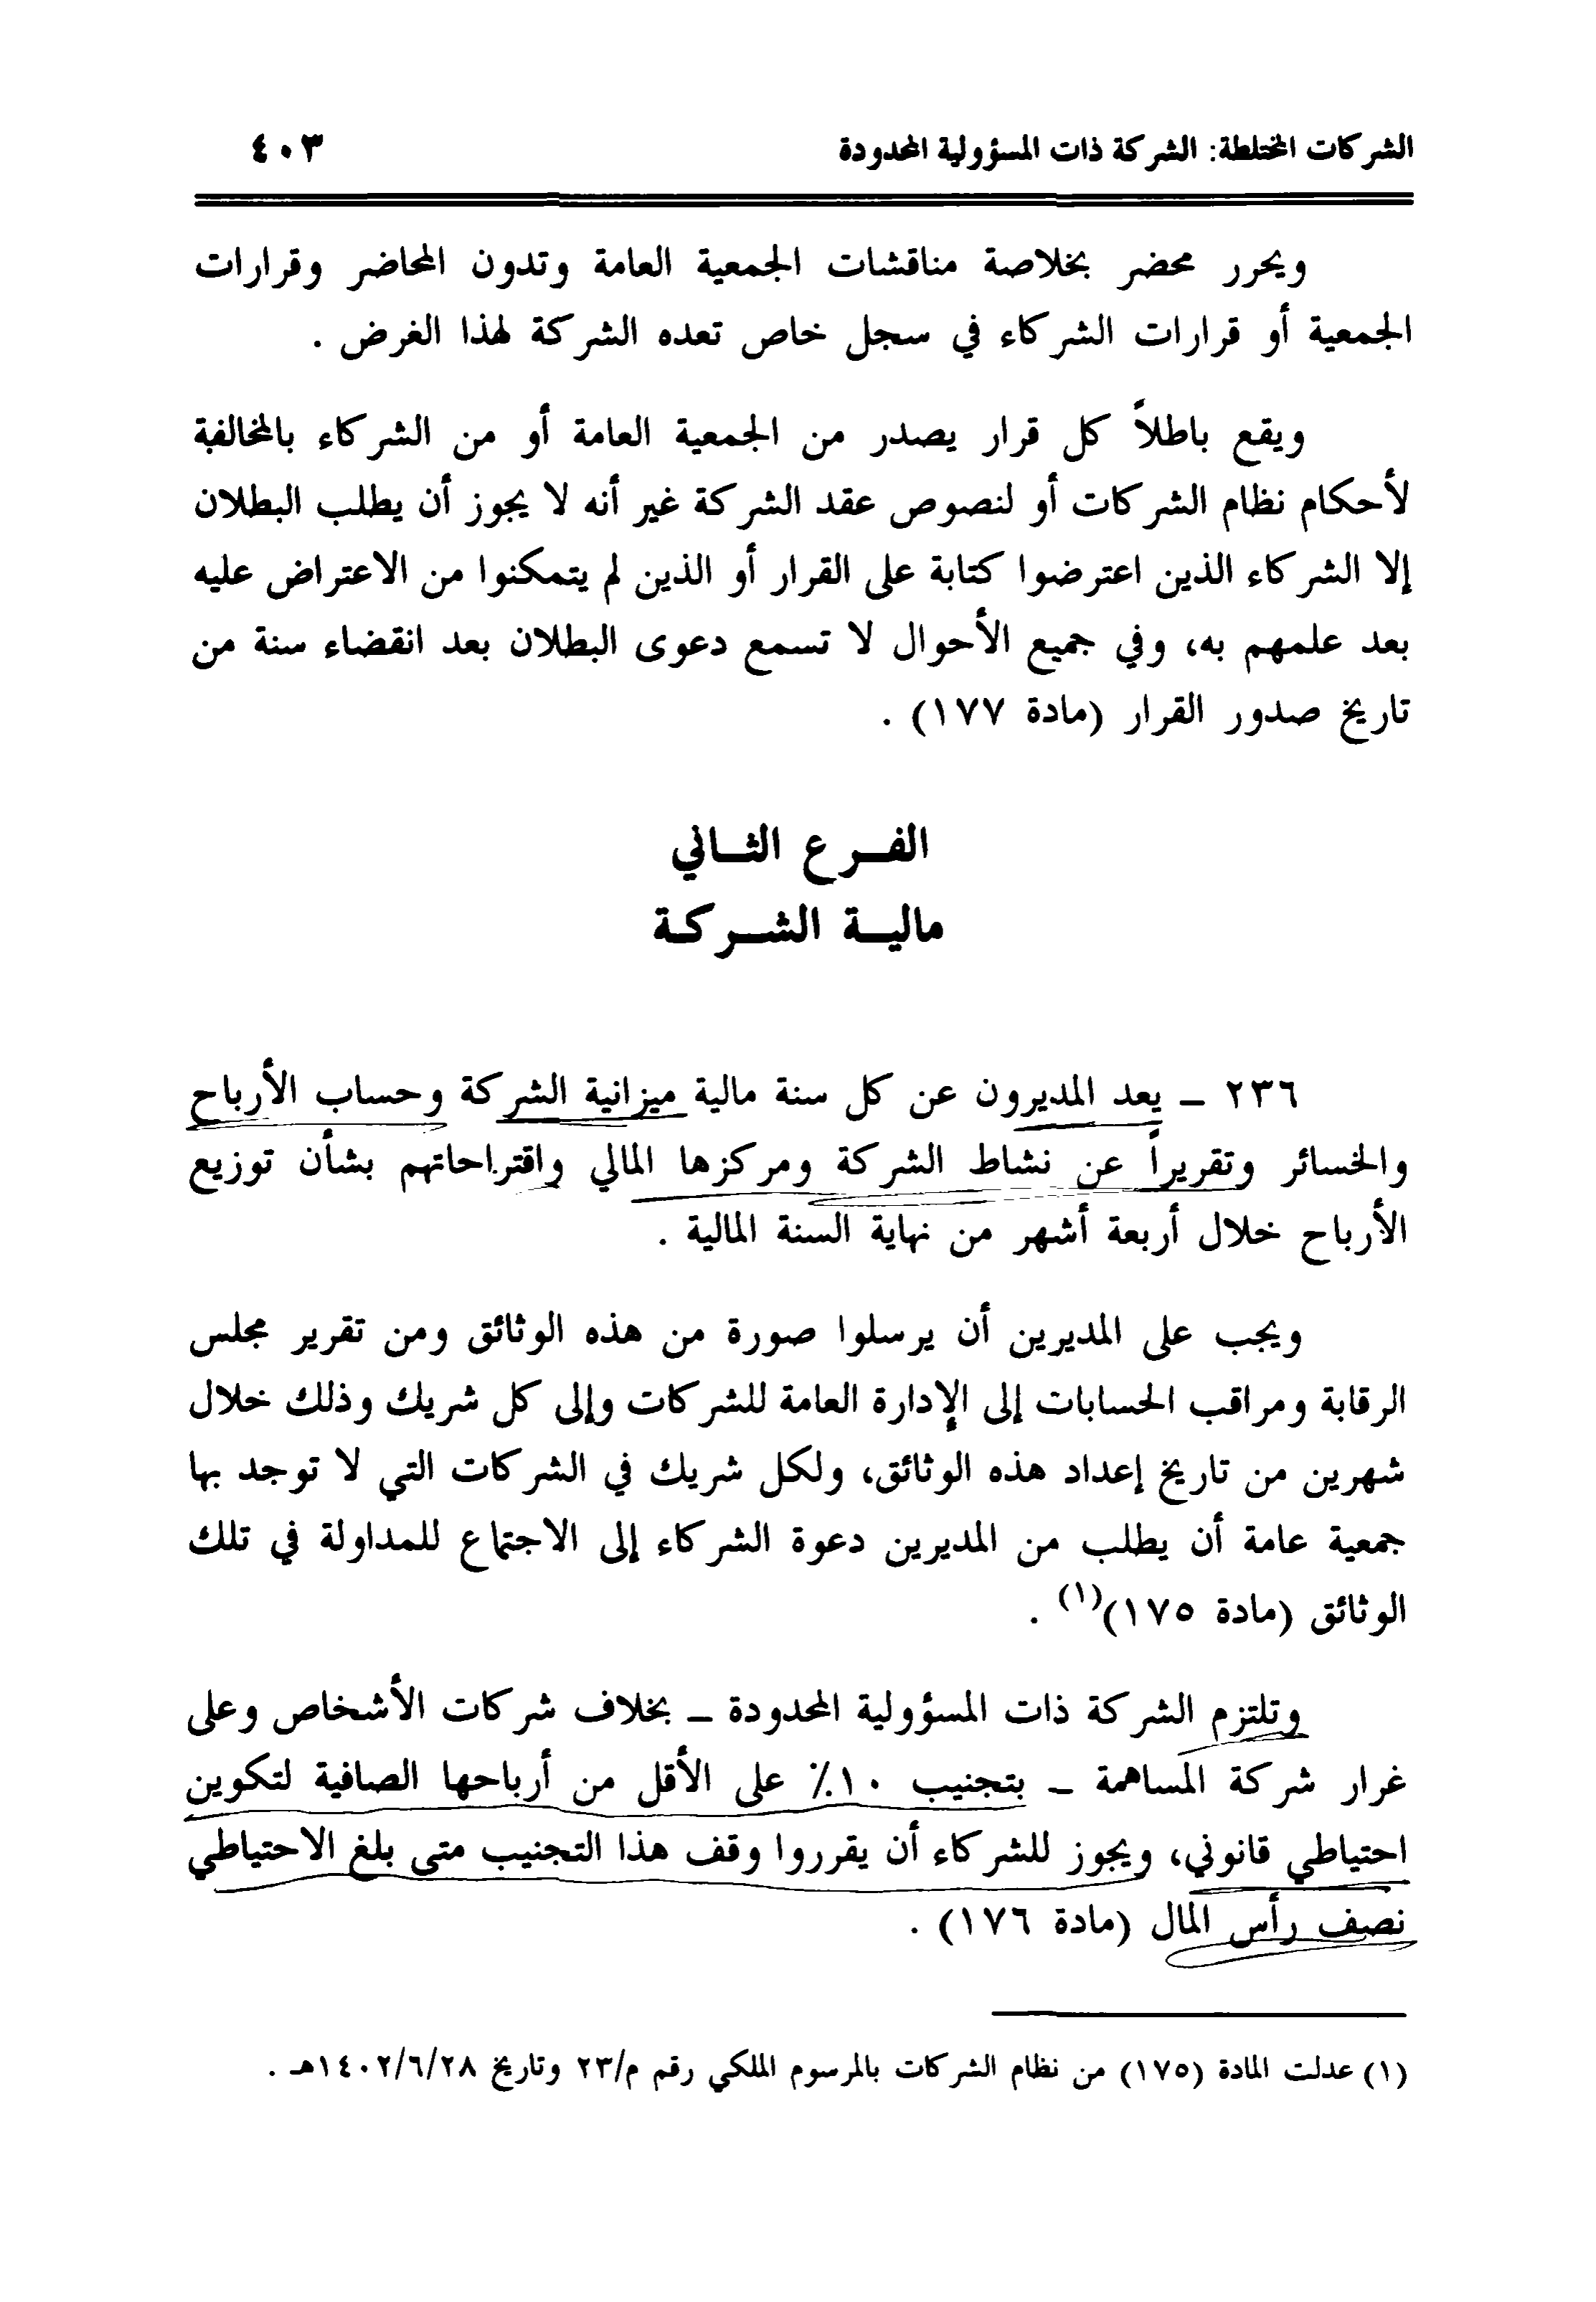 الشركات المختلطة: الشركة ذات المسؤولية المحدودة ٤٠٣
ويحرر محضر بخلاصة مناقشات الجمعية العامة وتدون المحاضر وقرارات
الجمعية أو قرارات الشركاء في سجل خاص تعده الشركة لهذا الغرض .
ويقع باطلاً كل قرار يصدر من الجمعية العامة أو من الشركاء بالمخالفة
لأحكام نظام الشركات أو لنصوص عقد الشركة غير أنه لا يجوز أن يطلب البطلان
إلا الشركاء الذين اعترضوا كتابة على القرار أو الذين لم يتمكنوا من الاعتراض عليه
بعد علمهم به، وفي جميع الأحوال لا تسمع دعوى البطلان بعد انقضاء سنة من
تاريخ صدور القرار (مادة ١٧٧) .
الفـرع الثـاني
ماليـة الشـركـة
٢٣٦ ـ يعد المديرون عن كل سنة مالية ميزانية الشركة وحساب الأرباح
والخسائر وتقريراً عن نشاط الشركة ومركزها المالي واقتراحاتهم بشأن توزيع
الأرباح خلال أربعة أشهر من نهاية السنة المالية .
ويجب على المديرين أن يرسلوا صورة من هذه الوثائق ومن تقرير مجلس
الرقابة ومراقب الحسابات إلى الإدارة العامة للشركات وإلى كل شريك وذلك خلال
شهرين من تاريخ إعداد هذه الوثائق، ولكل شريك في الشركات التي لا توجد بها
جمعية عامة أن يطلب من المديرين دعوة الشركاء إلى الاجتماع للمداولة في تلك
الوثائق (مادة ١٧٥)(١) .
وتلتزم الشركة ذات المسؤولية المحدودة ـ بخلاف شركات الأشخاص وعلى
غرار شركة المساهمة ـ بتجنيب ١٠٪ على الأقل من أرباحها الصافية لتكوين
احتياطي قانوني، ويجوز للشركاء أن يقرروا وقف هذا التجنيب متى بلغ الاحتياطي
نصف رأس المال (مادة ١٧٦) .
(١) عدلت المادة (١٧٥) من نظام الشركات بالمرسوم الملكي رقم م/٢٣ وتاريخ ١٤٠٢/٦/٢٨هـ .